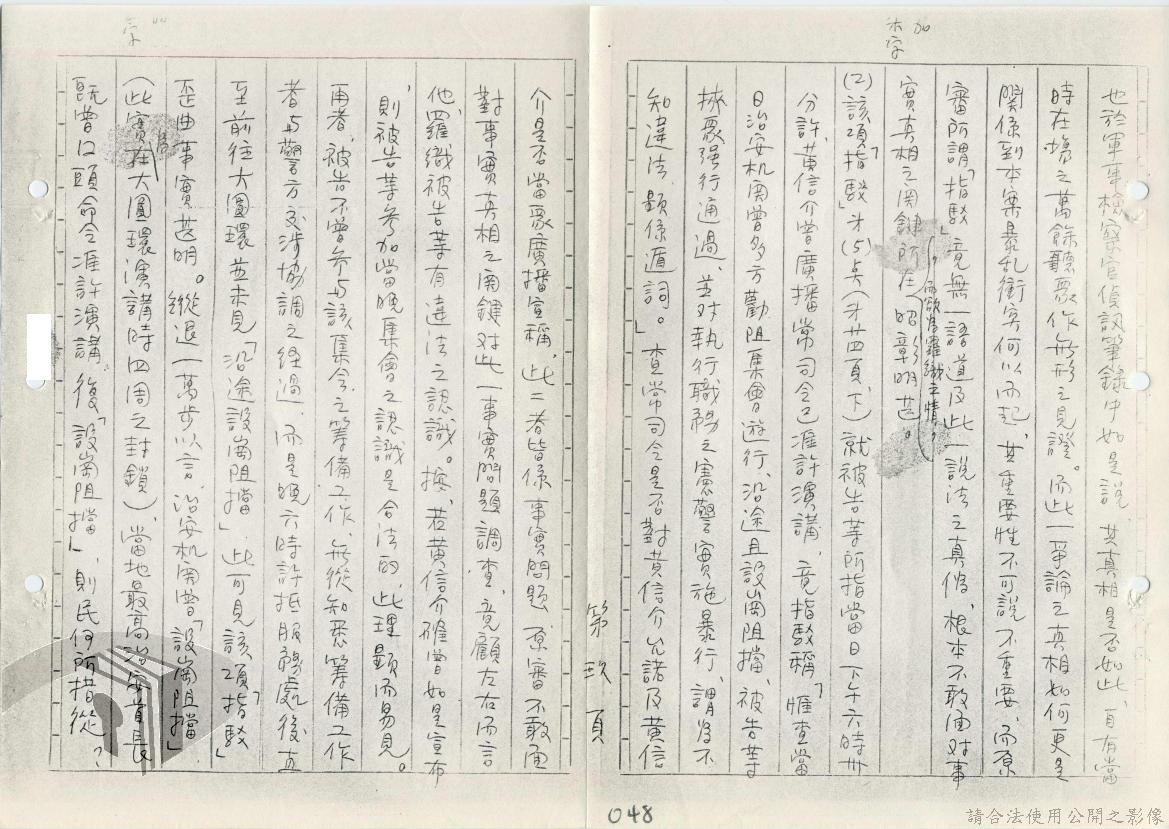 加
也於軍事檢察官偵訊筆錄中如是說，其真相是否如此，自有當
時在場之萬餘聽眾作無形之見證。而此一爭論之真相如何更是
關係到本案暴乱衝突何以而起，其重要性不可說不重要，而原
審所謂「指駁」竟無一語道及此一說法之真偽，根本不敢面对事
實真相之関鍵所在，而欲為羅織之情，昭章明甚。
(2)該項「指駁」才(5)点(才廿四頁、下)就被告等所指當日下午六時卅
分許，黃信介曾廣播常司令已准許演講，竟指駁稱「惟查當
日治安机関曾多方勸阻集會遊行，沿途且設崗阻擋，被告等
挾眾强行通過，並对執行職務之憲警實施暴行，謂為不
知違法，顯係遁詞。」查常司令是否對黃信介允諾及黃信
第玖頁
介是否當眾廣播宣稱，此二者皆係事實問題，原審不敢面
對事實真相之関鍵对此一事實問題調查，竟顧左右而言
他，羅織被告等有違法之認識。按，若黃信介確曾如是宣布
，則被告等參加當晚集會之認識是合法的，此理顯而易見。
再者，被告不曾參与該集會之籌備工作，無從知悉籌備工作
者与警方交涉協調之经過，而是晚六時許抵服務處後直
至前往大圓環並未見「沿途設崗阻擋」，此可見該項「指駁」
歪曲事實甚明。縱退一萬步以言，治安机関曾「設崗阻擋」
(此實為在大圓環演講時四周之封鎖)，當地最高治安首長
既曾口頭命令准許演講，後「設崗阻擋」，則民何所措從？
048
請合法使用公開之影像